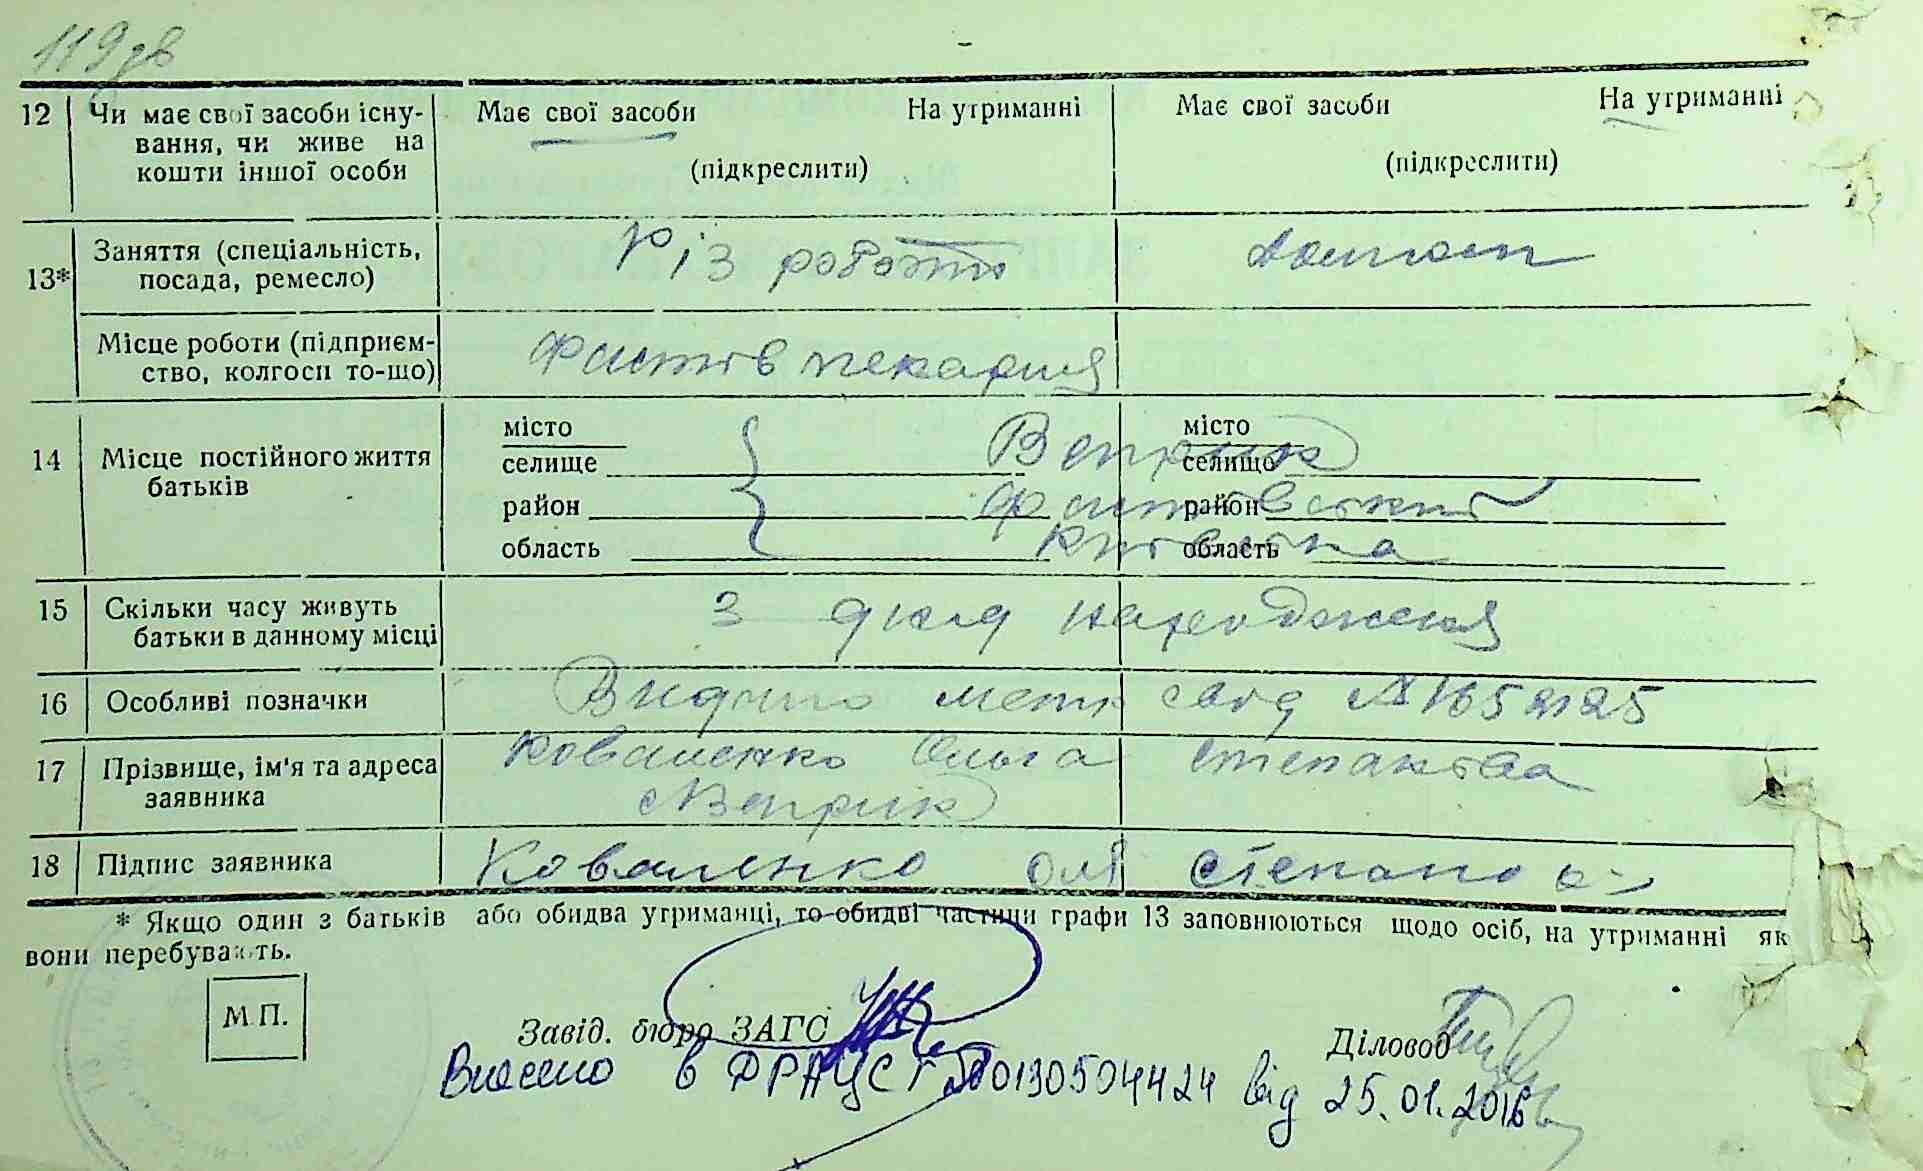 119зв
12 Чи має свої засоби існу- Має свої засоби На утриманні Має свої засоби На утриманні
вання, чи живе на
кошти іншої особи (підкреслити) (підкреслити)
Заняття (спеціальність, Різ роботи
13* посада, ремесло)
Місце роботи (підприєм- Фастів пекарня
ство, колгосп то-що)
місто місто
14 Місце постійного життя селище Веприк селищо
батьків район Фастівський район
область Київська область
15 Скільки часу живуть З дня народження
батьки в данному місці
16 Особливі позначки Видано метр свід
17 Прізвище, ім'я та адреса Коваленко Ольга Степанівна
заявника с Веприк
18 Підпис заявника Коваленко Оля Степанов
* Якщо один з батьків або обидва утриманці, то обидві частини графи 13 заповнюються щодо осіб, на утриманні як
вони перебувають.
М.П.
Завід. бюро ЗАГС Діловод
Внесено в ДРАЦСГ №00130504424 від 25.01.2016